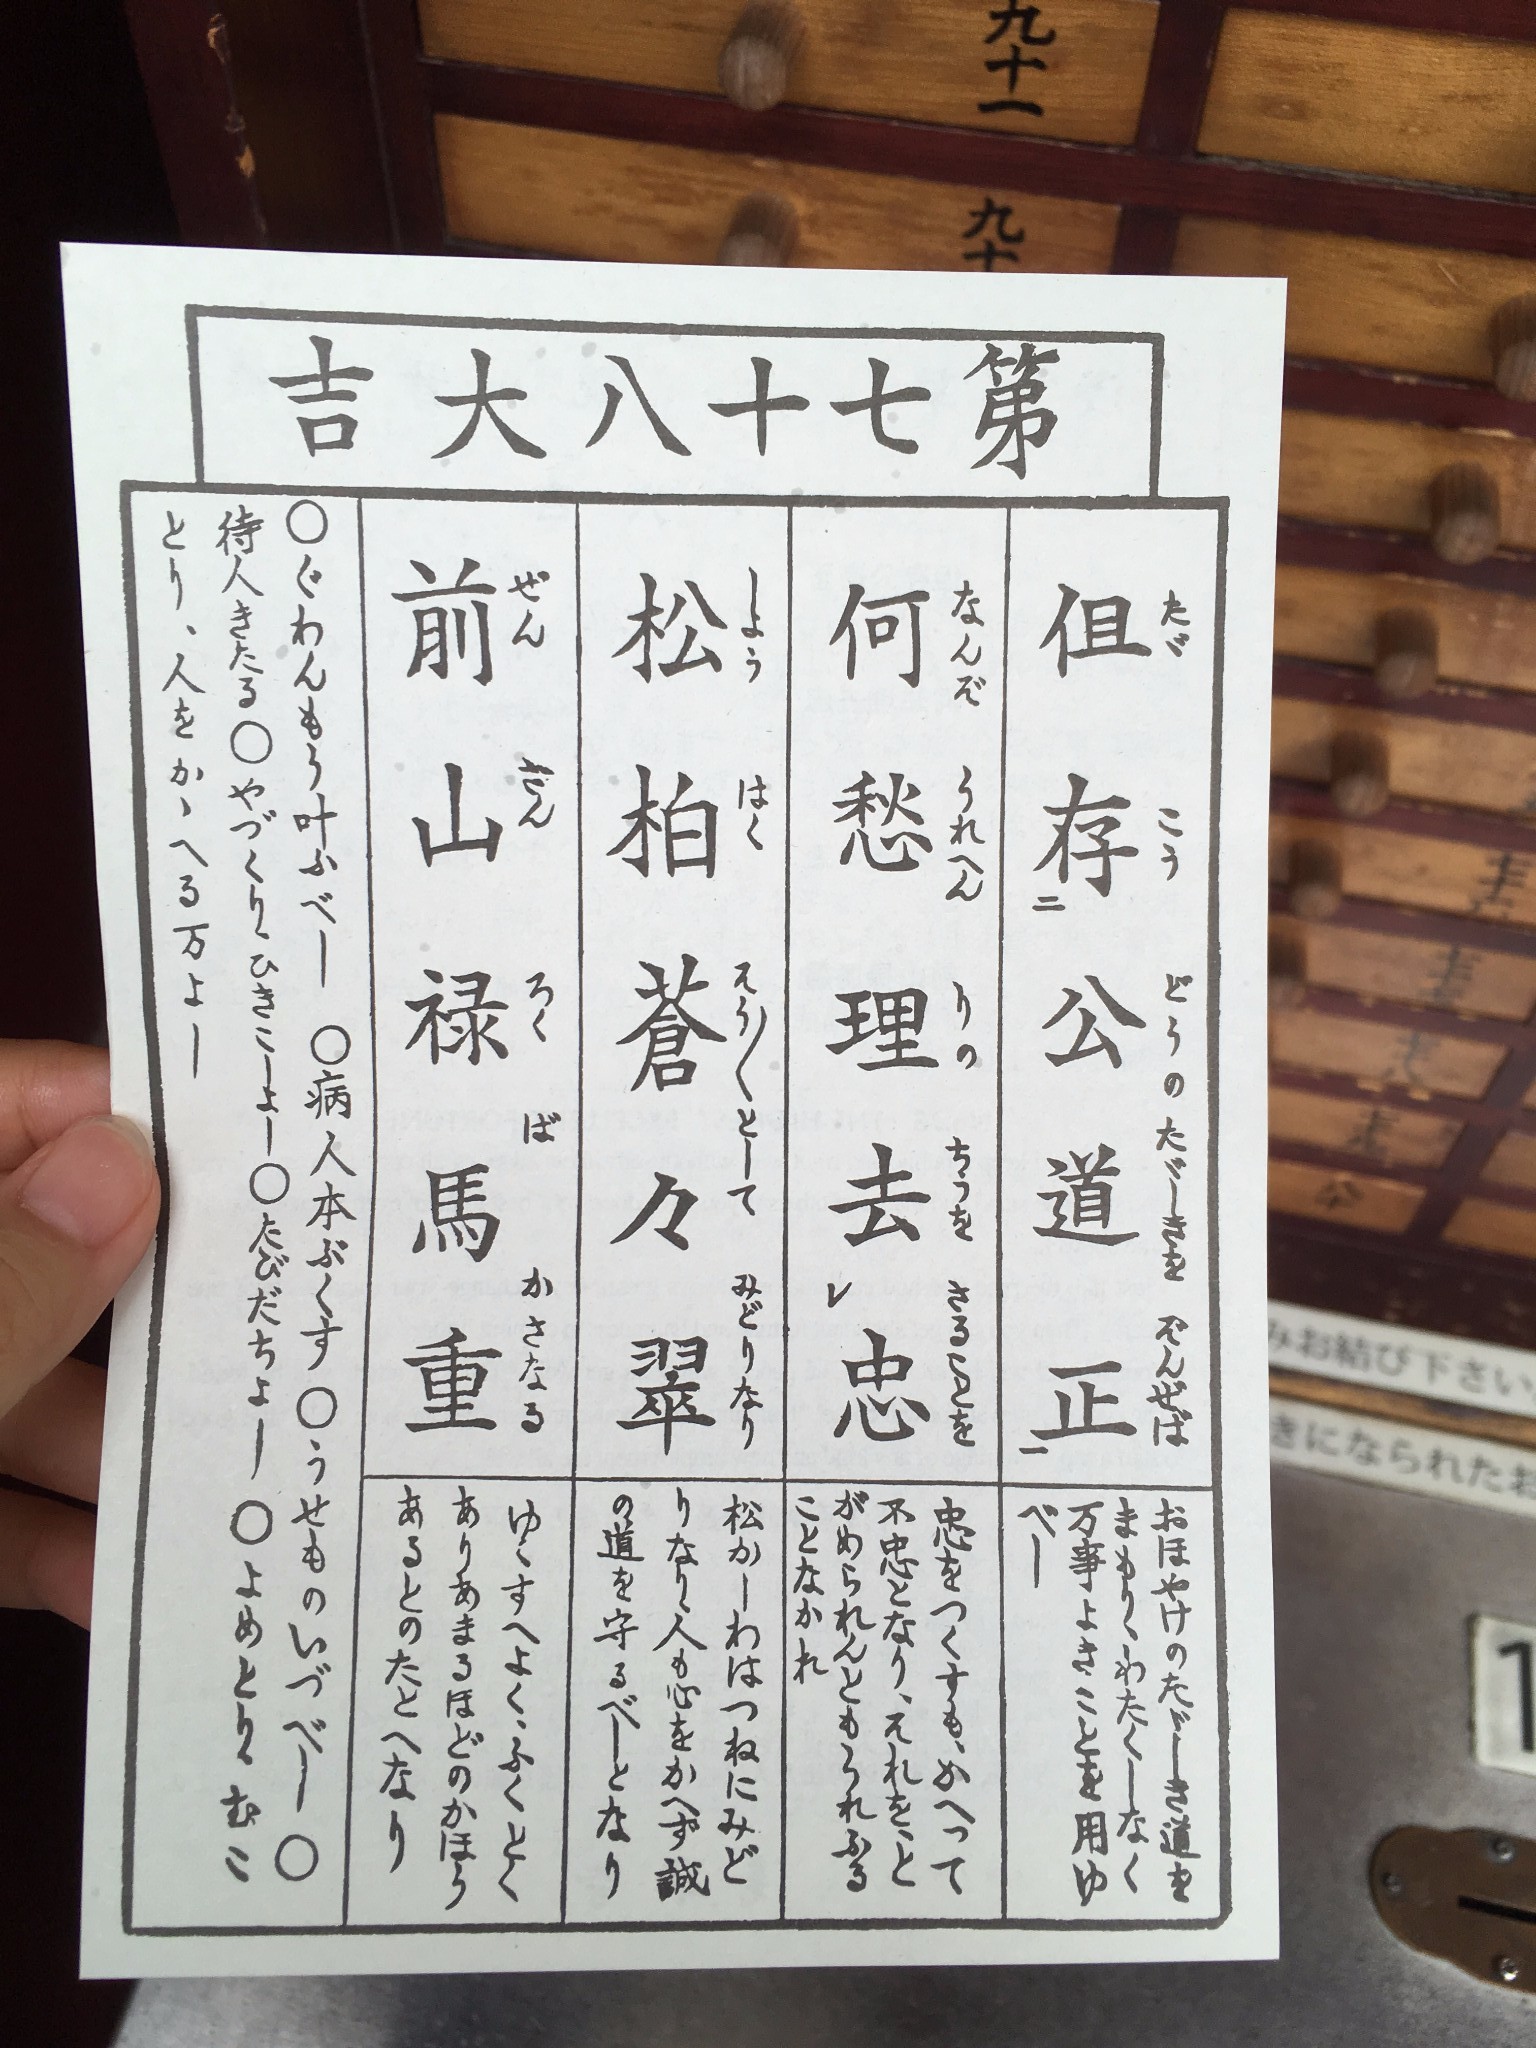 九十一
九十
第七十八大吉
たゞ こう どうのたゞしきを ぞんぜば
但存公道正
二 一
なんぞ うれへん りの ちうを さることを
何愁理去忠
レ
しよう はく そう〳〵として みどりなり
松柏蒼々翠
ぜん ざん ろく ば かさなる
前山禄馬重
おほやけのたゞしき道を
まもり、わたくしなく
万事よきことを用ゆ
べし
忠をつくすも、かへって
不忠となり、それを、と
がめられんともうれふる
ことなかれ
松かしわはつねにみど
りなり、人も心をかへず誠
の道を守るべしとなり
ゆくすへよく、ふくとく
ありあまるほどのかほう
あるとのたとへなり
○ぐわんもう叶ふべし ○病人本ぶくす ○うせものいづべし ○
待人きたる○やづくり、ひきこしよし○たびだちよし ○よめとり、むこ
とり、人をかゝへる万よし
みお結び下さい
きになられたお
1